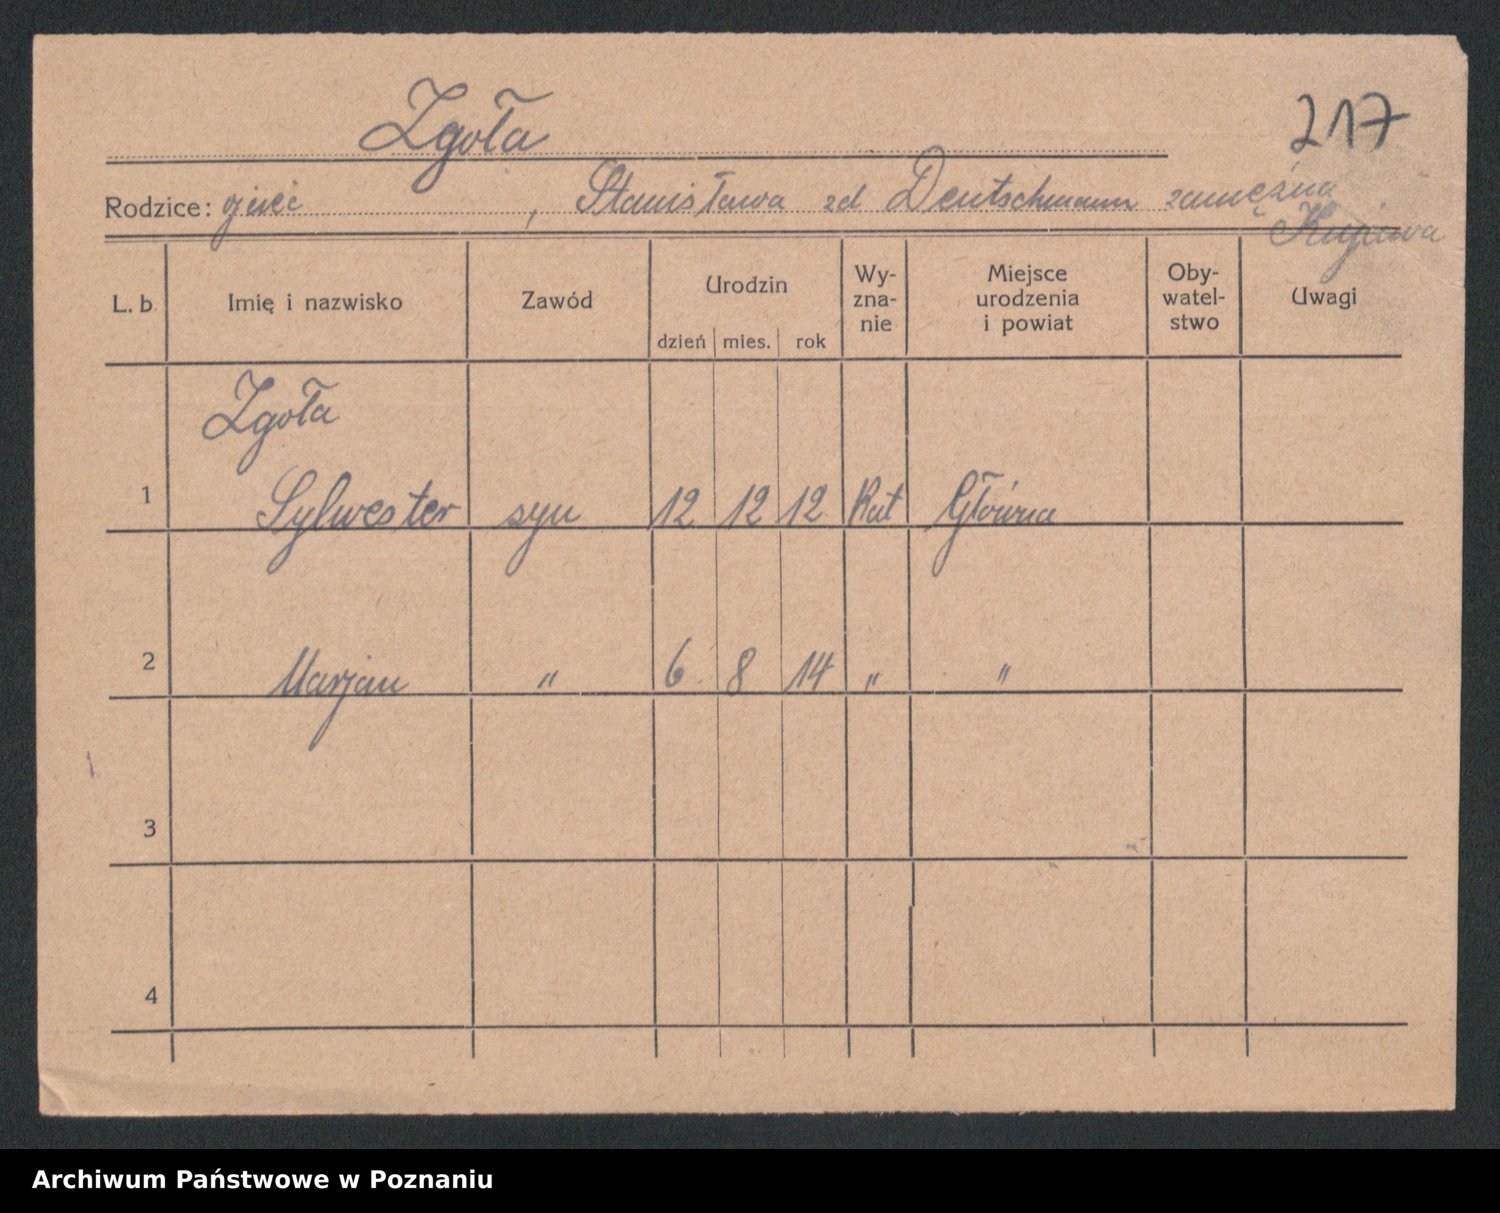 Zgoła
217
Rodzice: ojciec , Stanisława zd Deutschmann zamężna
Kujawa
L. b. Imię i nazwisko Zawód Urodzin Wy-zna-nie Miejsce urodzenia i powiat Oby-watel-stwo Uwagi
dzień mies. rok
Zgoła
1 Sylwester syn 12 12 12 Kat Główna
2 Marjan " 6 8 14 " "
3
4
Archiwum Państwowe w Poznaniu